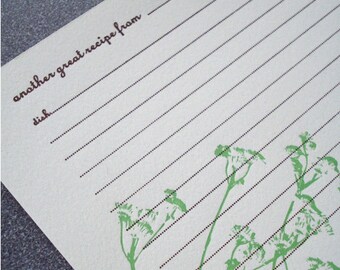 another great recipe from
dish